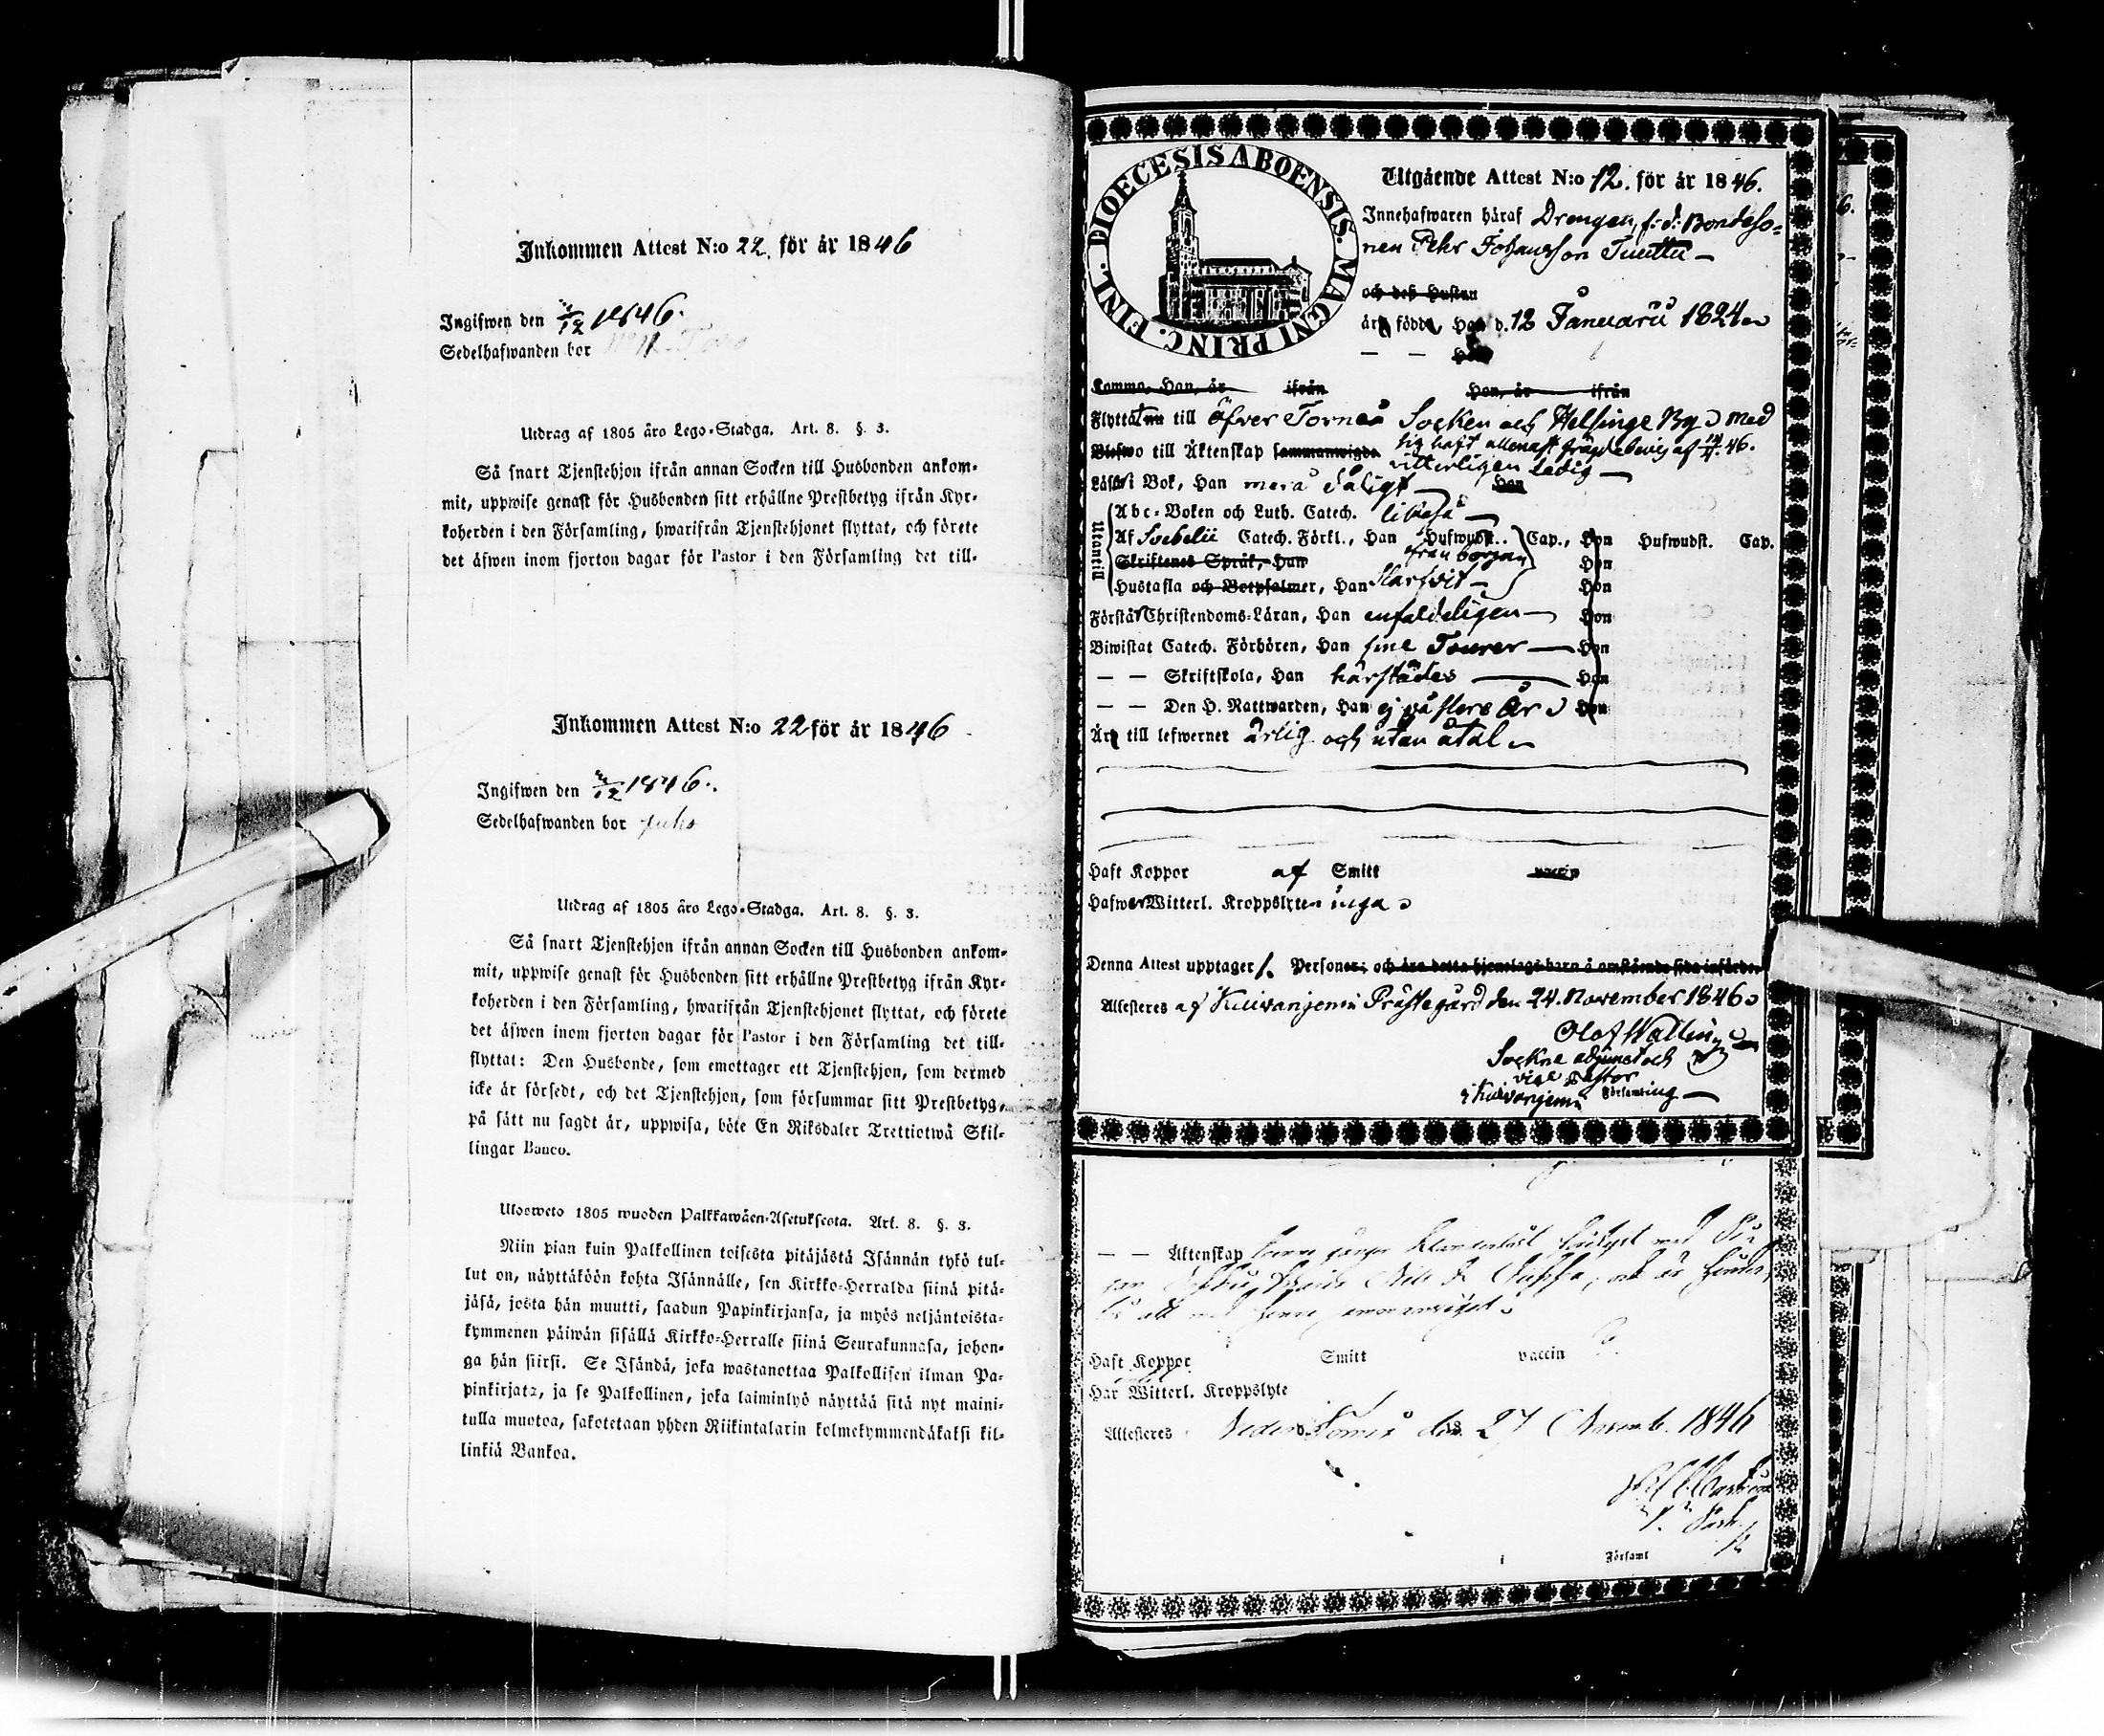 Inkommen Attest N:o 22. för år 1846
Ingifwen den /12 1846.
Sedelhafwanden bor
Utdrag af 1805 åro Lego-Stadga. Art. 8. §. 3.
Så snart Tjenstehjon ifrån annan Socken till Husbonden ankom-
mit, uppwise genast för Husbonden sitt erhållne Prestbetyg ifrån Kyr-
koherden i den Församling, hwarifrån Tjenstehjonet flyttat, och förete
det äfwen inom fjorton dagar för Pastor i den Församling det till-
Inkommen Attest N:o 22 för år 1846
Ingifwen den /12 1846.
Sedelhafwanden bor Juho
Utdrag af 1805 åro Lego-Stadga. Art. 8. §. 3.
Så snart Tjenstehjon ifrån annan Socken till Husbonden ankom-
mit, uppwise genast för Husbonden sitt erhållne Prestbetyg ifrån Kyr-
koherden i den Församling, hwarifrån Tjenstehjonet flyttat, och förete
det äfwen inom fjorton dagar för Pastor i den Församling det till-
flyttat: Den Husbonde, som emottager ett Tjenstehjon, som dermed
icke är försedt, och det Tjenstehjon, som försummar sitt Prestbetyg,
på sätt nu sagdt är, uppwisa, böte En Riksdaler Trettiotwå Skil-
lingar Banco.
Ulosweto 1805 wuoden Palkkawäen-Asetuksesta. Art. 8. §. 3.
Niin pian kuin Palkollinen toisesta pitäjästä Isännän tykö tul-
lut on, näyttäköön kohta Isännälle, sen Kirkko-Herralda siinä pitä-
jäsä, josta hän muutti, saadun Papinkirjansa, ja myös neljäntoista-
kymmenen päiwän sisällä Kirkko-Herralle siinä Seurakunnasa, johon-
ga hän siirsi. Se Isändä, joka wastanottaa Palkollisen ilman Pa-
pinkirjata, ja se Palkollinen, joka laiminlyö näyttää sitä nyt maini-
tulla muotoa, sakotetaan yhden Riikintalarin kolmekymmendäkaksi kil-
linkiä Bankoa.
DIOECESIS ABOENSIS. MAGNI PRINC. FINL.
Utgående Attest N:o 12. för år 1846.
Innehafwaren häraf Drengen, f: d: Bondeso-
nen Pehr Johansson Tuettu
och dess Hustru
är född, Han d. 12 Januarii 1824
— — Hon
Komme, Han, år ifrån Hon, år ifrån
Flyttat till Öfver Torneå Socken och Helsinge By med
Blefwo till Äktenskap sammanwigde. sig haft allenast frägdebevis af 46.
vitterligen ledig
Läser i Bok, Han mera dåligt Hon
Utantill
Abc-Boken och Luth. Catech. likaså
Af Svebelii Catech. Förkl., Han Hufwudst. Cap., Hon Hufwudst. Cap.
från början
Skriftenes Språk, Han Hon
Hustafla och Botpsalmer, Han slarfvit Hon
Förstår Christendoms-Läran, Han enfaldeligen Hon
Biwistat Catech. Förhören, Han sine Tourer Hon
— — Skriftskola, Han härstädes Hon
— — Den H. Nattwarden, Han ej på flere År Hon
Är till lefwernet ärlig och utan åtal
Haft Koppor af Smitt vaccin
Hafwer Witterl. Kroppslyten inga
Denna Attest upptager 1. Personer; och äro detta hjonelags barn å omstående sida införde.
Attesteres af Kuivaniemi Prästegård den 24. November 1846
Olof Wallin
Sockne adjunct och
vice Pastor
i Kuivaniemi Församling
— — Äktenskap
Haft Koppor Smitt vaccin
Har Witterl. Kroppslyte
Attesteres Neder Torneå den 27 Novemb. 1846
i Församl